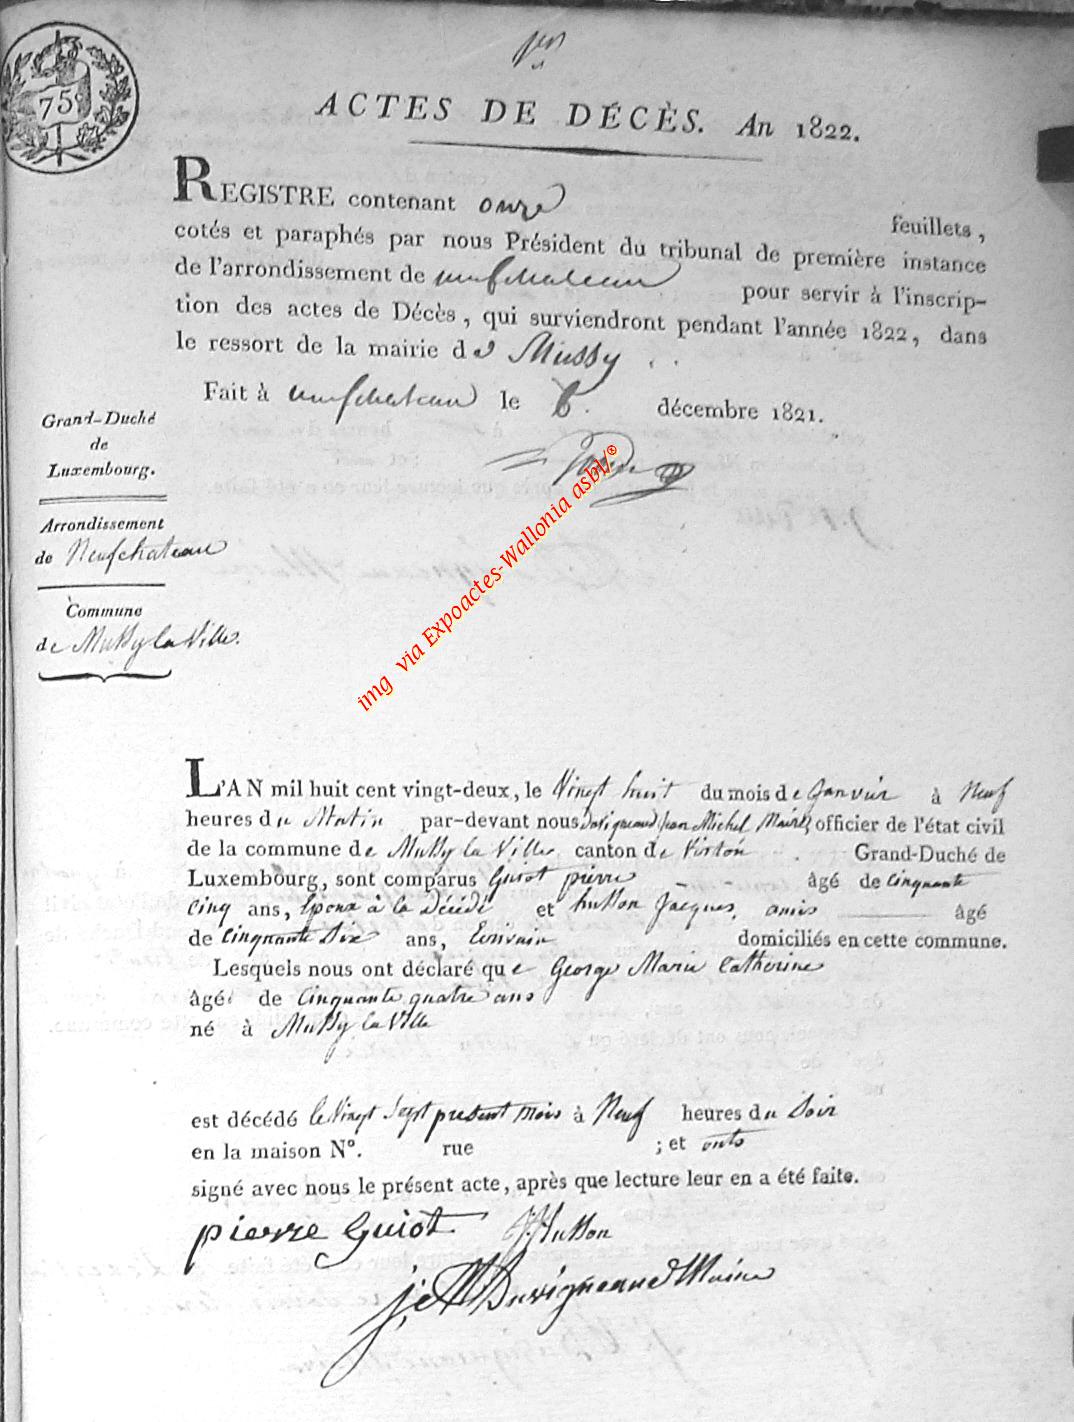 75
1er
ACTES DE DÉCÈS. An 1822.
REGISTRE contenant onze feuillets,
cotés et paraphés par nous Président du tribunal de première instance
de l'arrondissement de neufchateau pour servir à l'inscrip-
tion des actes de Décès, qui surviendront pendant l'année 1822, dans
le ressort de la mairie de Mussy
Fait à neufchateau le 6. décembre 1821.
Grand-Duché
de
Luxembourg.
Arrondissement
de Neufchateau
Commune
de Mussy la Ville.
img via Expoactes-Wallonia asbl/®
L'AN mil huit cent vingt-deux, le Vingt huit du mois de Janvier à Neuf
heures du Matin par-devant nous Jean Michel Maire officier de l'état civil
de la commune de Mussy la Ville canton de Virton Grand-Duché de
Luxembourg, sont comparus Guiot pierre âgé de Cinquante
Cinq ans, Epoux à la Décédé et husson Jacques, amis âgé
de Cinquante Six ans, Ecrivain domiciliés en cette commune.
Lesquels nous ont déclaré que George Marie Catherine
âgé de Cinquante quatre ans
né à Mussy la Ville
est décédé le Vingt Sept présent mois à Neuf heures du Soir
en la maison N°. rue ; et onts
signé avec nous le présent acte, après que lecture leur en a été faite.
pierre Guiot J. Husson
j: M Duvigneaud Maire